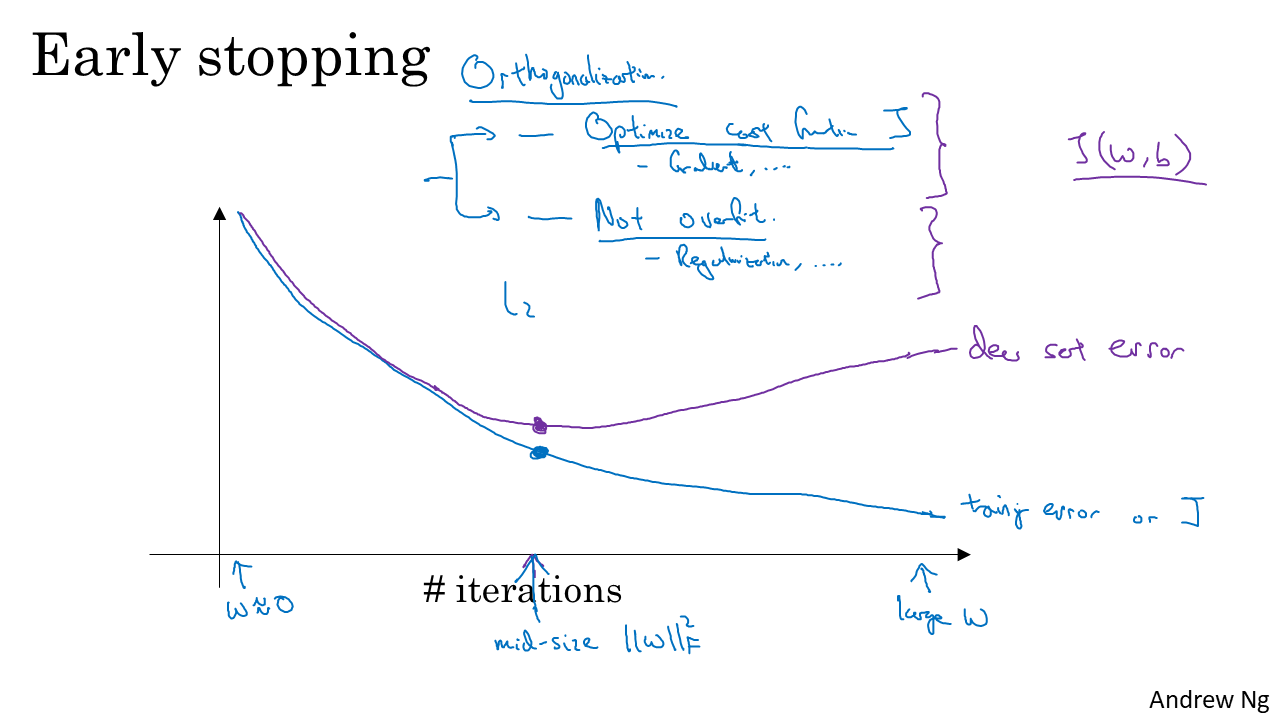 Early stopping
Orthogonalization.
— Optimize cost function J
- Gradient, ....
J(w,b)
— Not overfit.
- Regularization, ....
L2
dev set error
training error or J
w≈0
# iterations
large w
mid-size ||w||²_F
Andrew Ng